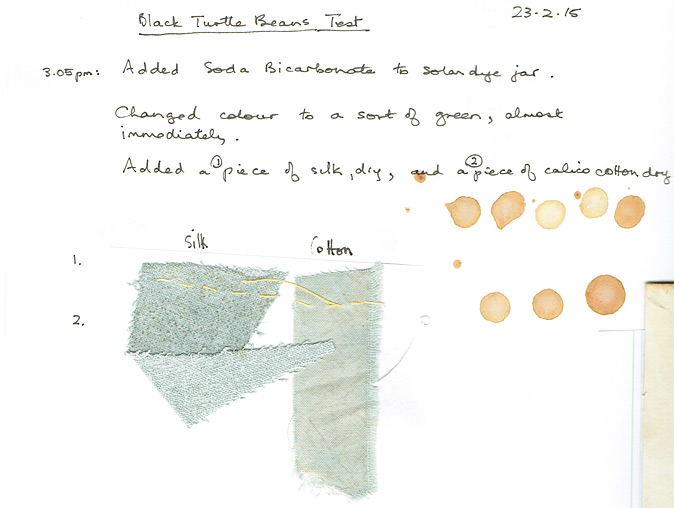 Black Turtle Beans Test
23.2.15
3.05pm: Added Soda Bicarbonate to solar dye jar.
Changed colour to a sort of green, almost
immediately.
Added a ① piece of silk, dry, and a ② piece of calico cotton dry
Silk Cotton
1.
2.